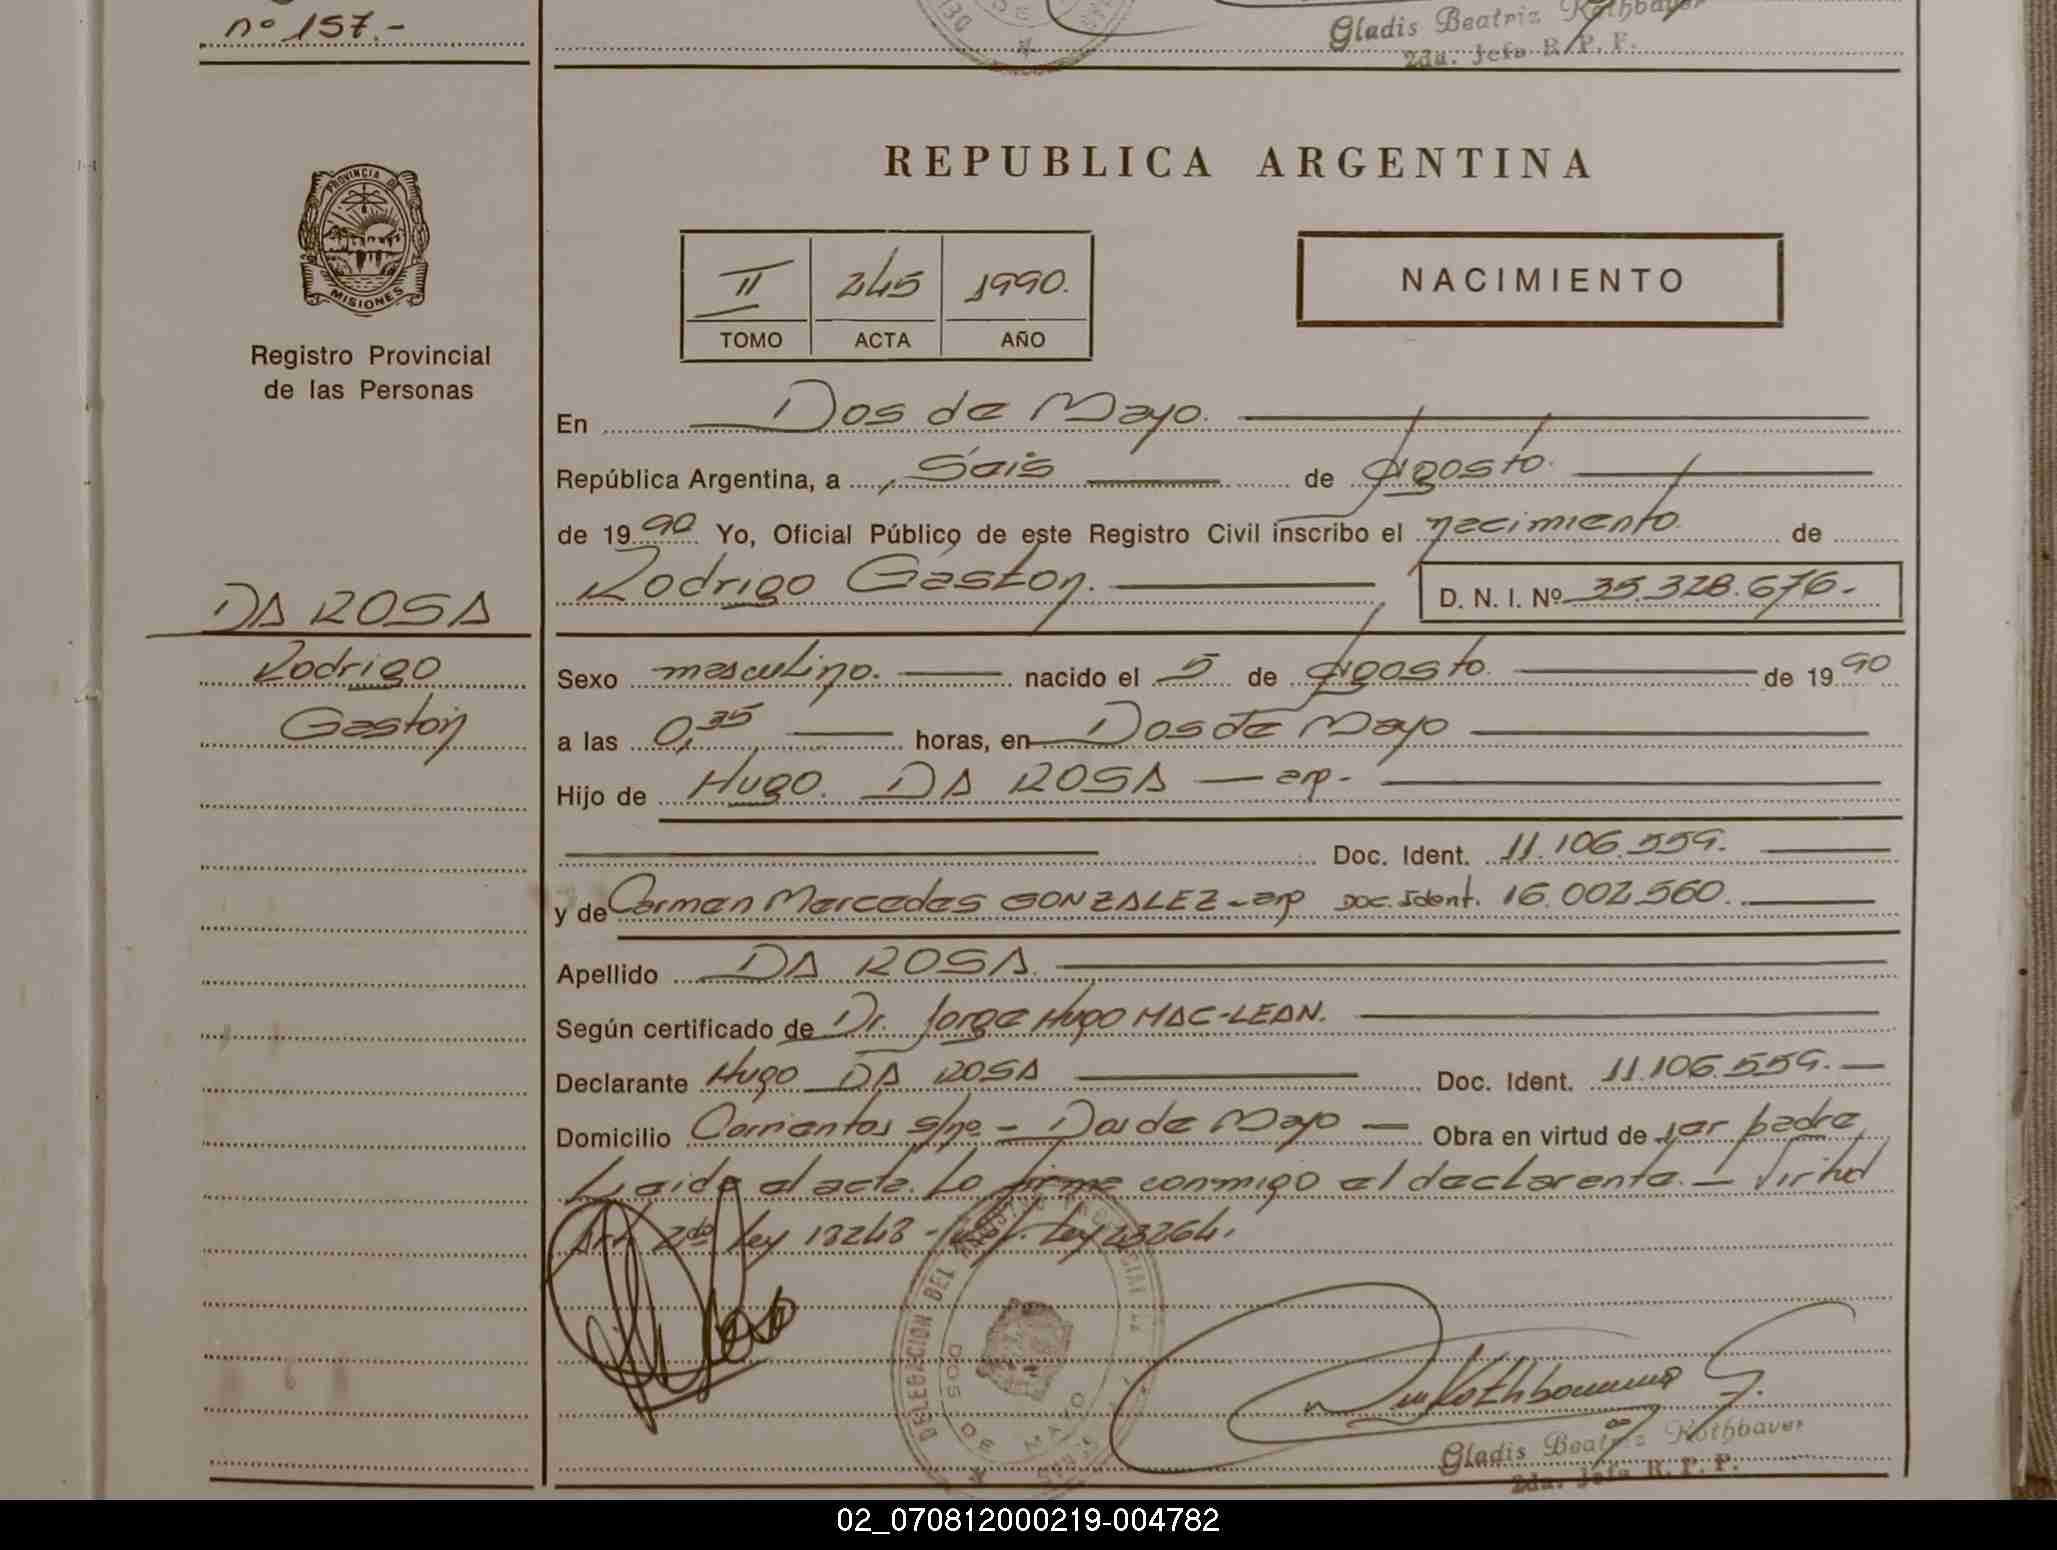 nº 157.-
Gladis Beatriz Rothbauer
2da. Jefa R. P. P.
PROVINCIA DE
MISIONES
Registro Provincial
de las Personas
DA ROSA
Rodrigo
Gastón
REPUBLICA ARGENTINA
II 245 1990.
TOMO ACTA AÑO
NACIMIENTO
En Dos de Mayo.
República Argentina, a Seis de Agosto.
de 1990 Yo, Oficial Público de este Registro Civil inscribo el nacimiento de
Rodrigo Gastón. D. N. I. Nº 35.328.676.-
Sexo masculino. nacido el 5 de Agosto. de 1990
a las 0,35 horas, en Dos de Mayo
Hijo de Hugo. DA ROSA — arp-
Doc. Ident. 11.106.559.
y de Carmen Mercedes GONZALEZ - arp Doc. Ident. 16.002.560.
Apellido DA ROSA.
Según certificado de Dr. Jorge Hugo MAC-LEAN.
Declarante Hugo DA ROSA Doc. Ident. 11.106.559.-
Domicilio Corrientes s/nº - Dos de Mayo — Obra en virtud de ser padre
Leida el acta. Lo firma conmigo el declarante. — Virtud
Art. 2do Ley 18248 - Ley 23264.
DELEGACION DEL REGISTRO PROVINCIAL DE LAS
DOS DE MAYO
Gladis Beatriz Rothbauer
2da. Jefa R. P. P.
02_070812000219-004782